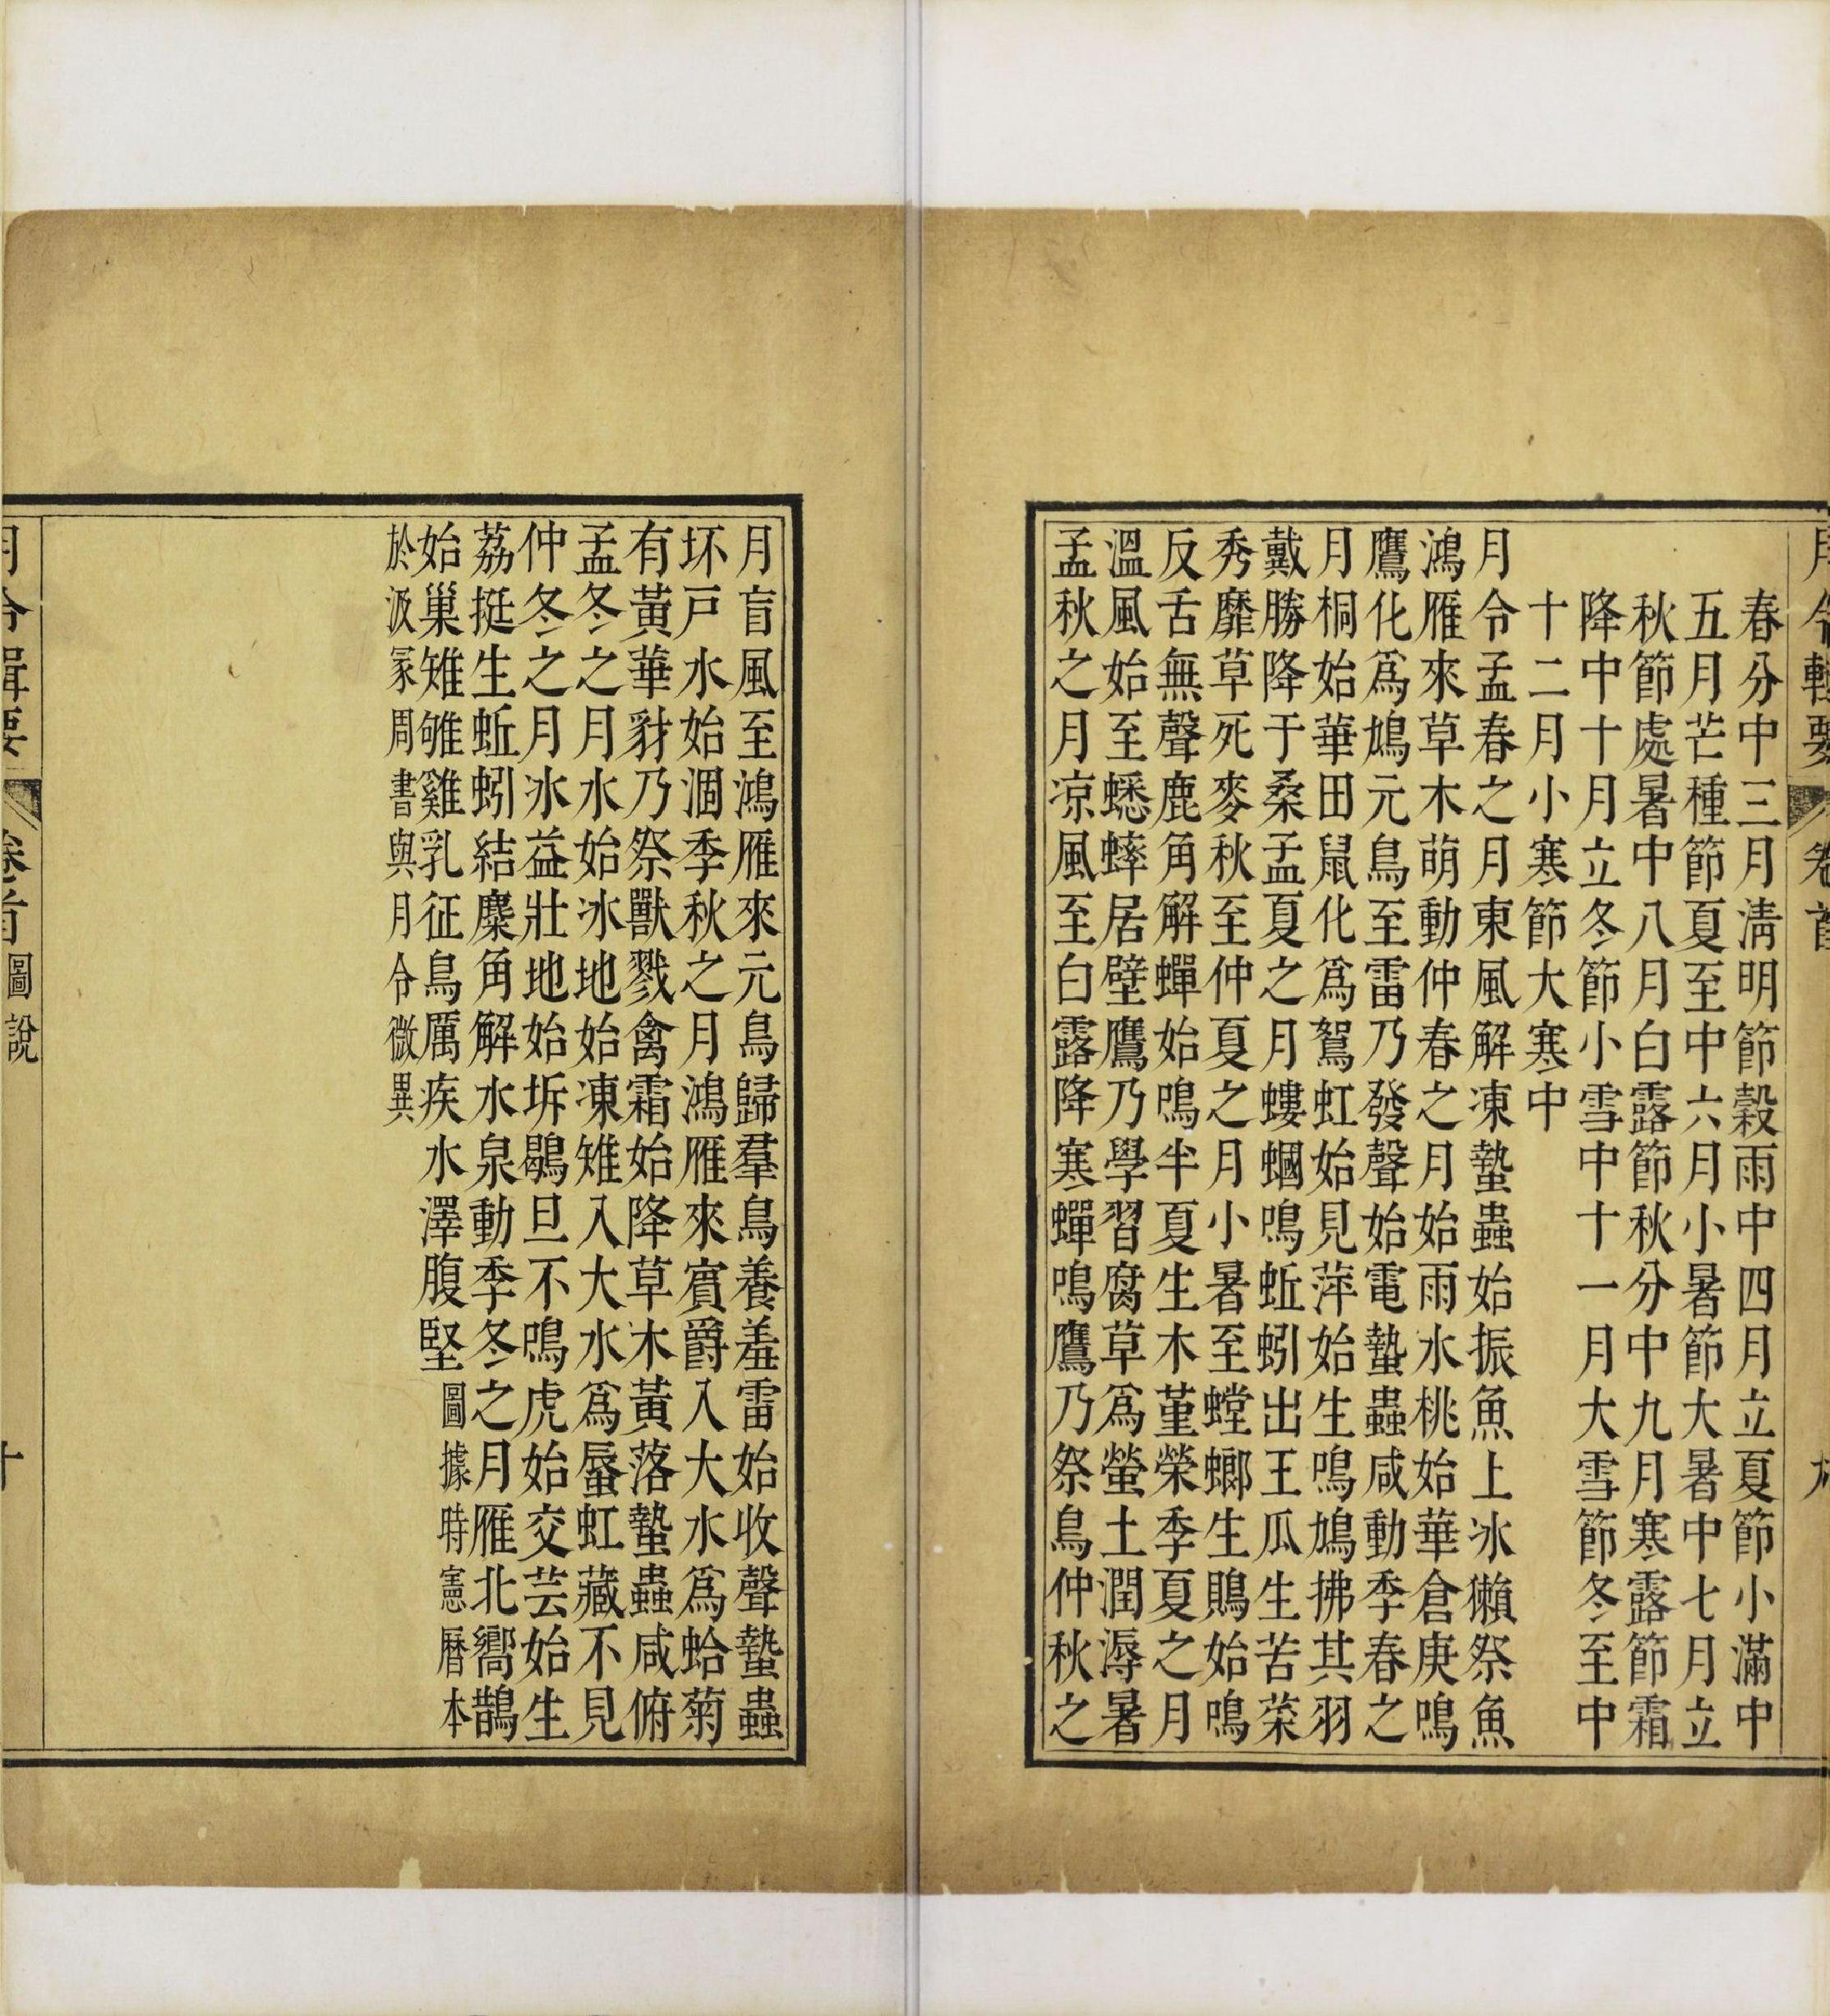 月令輯要
卷首
春分中三月淸明節穀雨中四月立夏節小滿中
五月芒種節夏至中六月小暑節大暑中七月立
秋節處暑中八月白露節秋分中九月寒露節霜
降中十月立冬節小雪中十一月大雪節冬至中
十二月小寒節大寒中
月令孟春之月東風解凍蟄蟲始振魚上冰獺祭魚
鴻雁來草木萌動仲春之月始雨水桃始華倉庚鳴
鷹化爲鳩元鳥至雷乃發聲始電蟄蟲咸動季春之
月桐始華田鼠化爲鴽虹始見萍始生鳴鳩拂其羽
戴勝降于桑孟夏之月螻蟈鳴蚯蚓出王瓜生苦菜
秀靡草死麥秋至仲夏之月小暑至螳螂生鵙始鳴
反舌無聲鹿角解蟬始鳴半夏生木堇榮季夏之月
溫風始至蟋蟀居壁鷹乃學習腐草爲螢土潤溽暑
孟秋之月凉風至白露降寒蟬鳴鷹乃祭鳥仲秋之
月盲風至鴻雁來元鳥歸羣鳥養羞雷始收聲蟄蟲
坏戸水始涸季秋之月鴻雁來賓爵入大水爲蛤菊
有黃華豺乃祭獸戮禽霜始降草木黃落蟄蟲咸俯
孟冬之月水始冰地始凍雉入大水爲蜃虹藏不見
仲冬之月冰益壯地始坼鶡旦不鳴虎始交芸始生
荔挺生蚯蚓結麋角解水泉動季冬之月雁北嚮鵲
始巢雉雊雞乳征鳥厲疾水澤腹堅圖據時憲曆本
於汲冢周書與月令微異
月令輯要
卷首
圖說
十